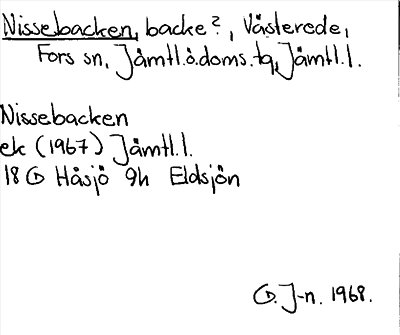 Nissebacken, backe?, Västerede,
Fors sn, Jämtl.ö.doms.tg, Jämtl.l.
Nissebacken
ek (1967) Jämtl.l.
18 D Håsjö 9h Eldsjön
D. J-n. 1968.